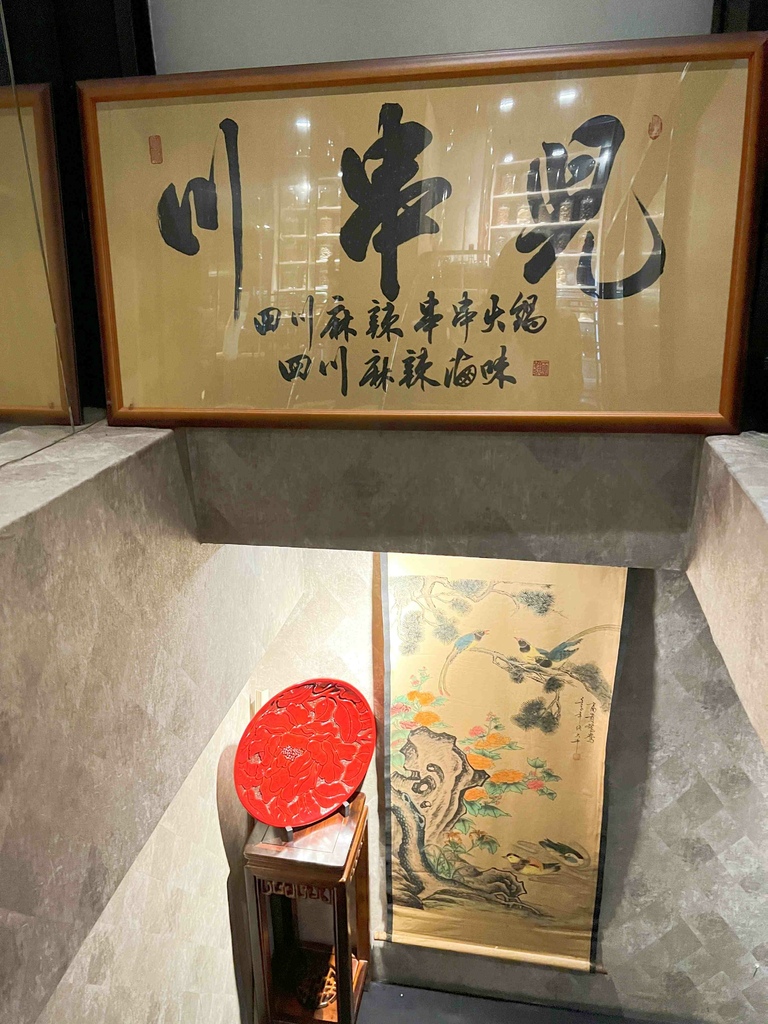 川串兒
四川麻辣串串火鍋
四川麻辣海味